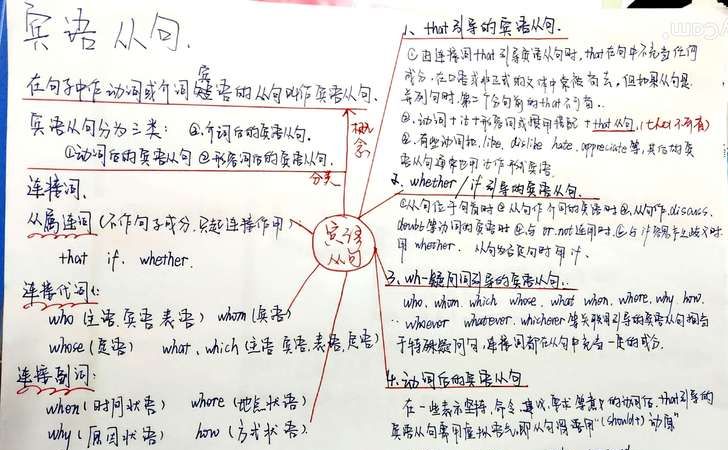 宾语从句.
在句子中作动词或介词宾语的从句叫作宾语从句.
宾语从句分为三类: ①.介词后的宾语从句.
①动词后的宾语从句 ②形容词后的宾语从句.
概念
分类
连接词.
从属连词(不作句子成分,只起连接作用)
that if. whether.
连接代词:
who (主语.宾语.表语) whom (宾语)
whose (定语) what. which (主语 宾语.表语.定语)
连接副词:
when (时间状语) where (地点状语)
why (原因状语) how (方式状语).
宾语从句
1. that引导的宾语从句.
①由连接词that引导宾语从句时, that在句中不充当任何
成分.在口语或非正式的文体中常被省去,但如果从句是
并列句时.第二个分句前的that不可省..
②.动词+it+形容词或惯用搭配+that从句.(that不可省)
②.有些动词如,like, dislike hate.appreciate等,其后的宾
语从句通常也用it作形式宾语.
2. whether/if引导的宾语从句.
①从句位于句首时②从句作介词的宾语时③.从句作.discuss.
doubt等动词的宾语时④与or not连用时.⑤与if易产生歧义时
用 whether. 从句为否定句时用if.
3. wh-疑问词引导的宾语从句..
who. whom. which whose. what when. where. why. how.
whoever whatever. whichever等关联词引导的宾语从句相当
于特殊疑问句,连接词都在从句中充当一定的成分.
4.动词后的宾语从句
在一些表示坚持,命令.建议.要求等意义的动词后, that引导的
宾语从句需用虚拟语气,即从句谓语用"(should+)动原"